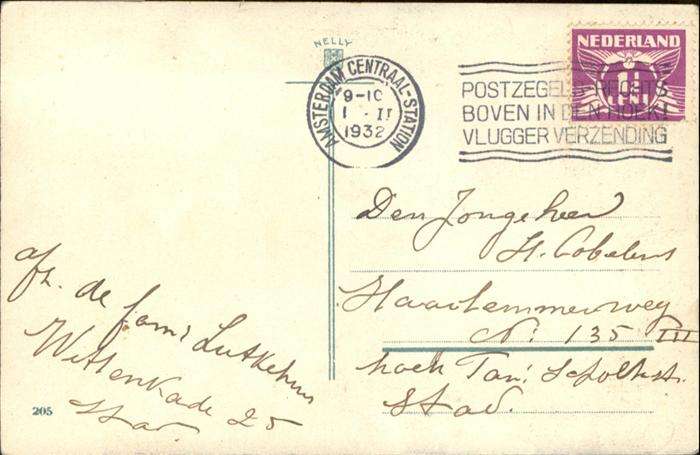 NELLY
AMSTERDAM CENTRAAL-STATION
9-10
1 · II
1932
POSTZEGELS RECHTS
BOVEN IN DEN HOEK!
VLUGGER VERZENDING
NEDERLAND
1½
Den Jongeheer
H. Cobelens
Haarlemmerweg
No: 135 III
hoek Van:
Stad.
afz. de fam:
Wittenkade 25
Stad.
205